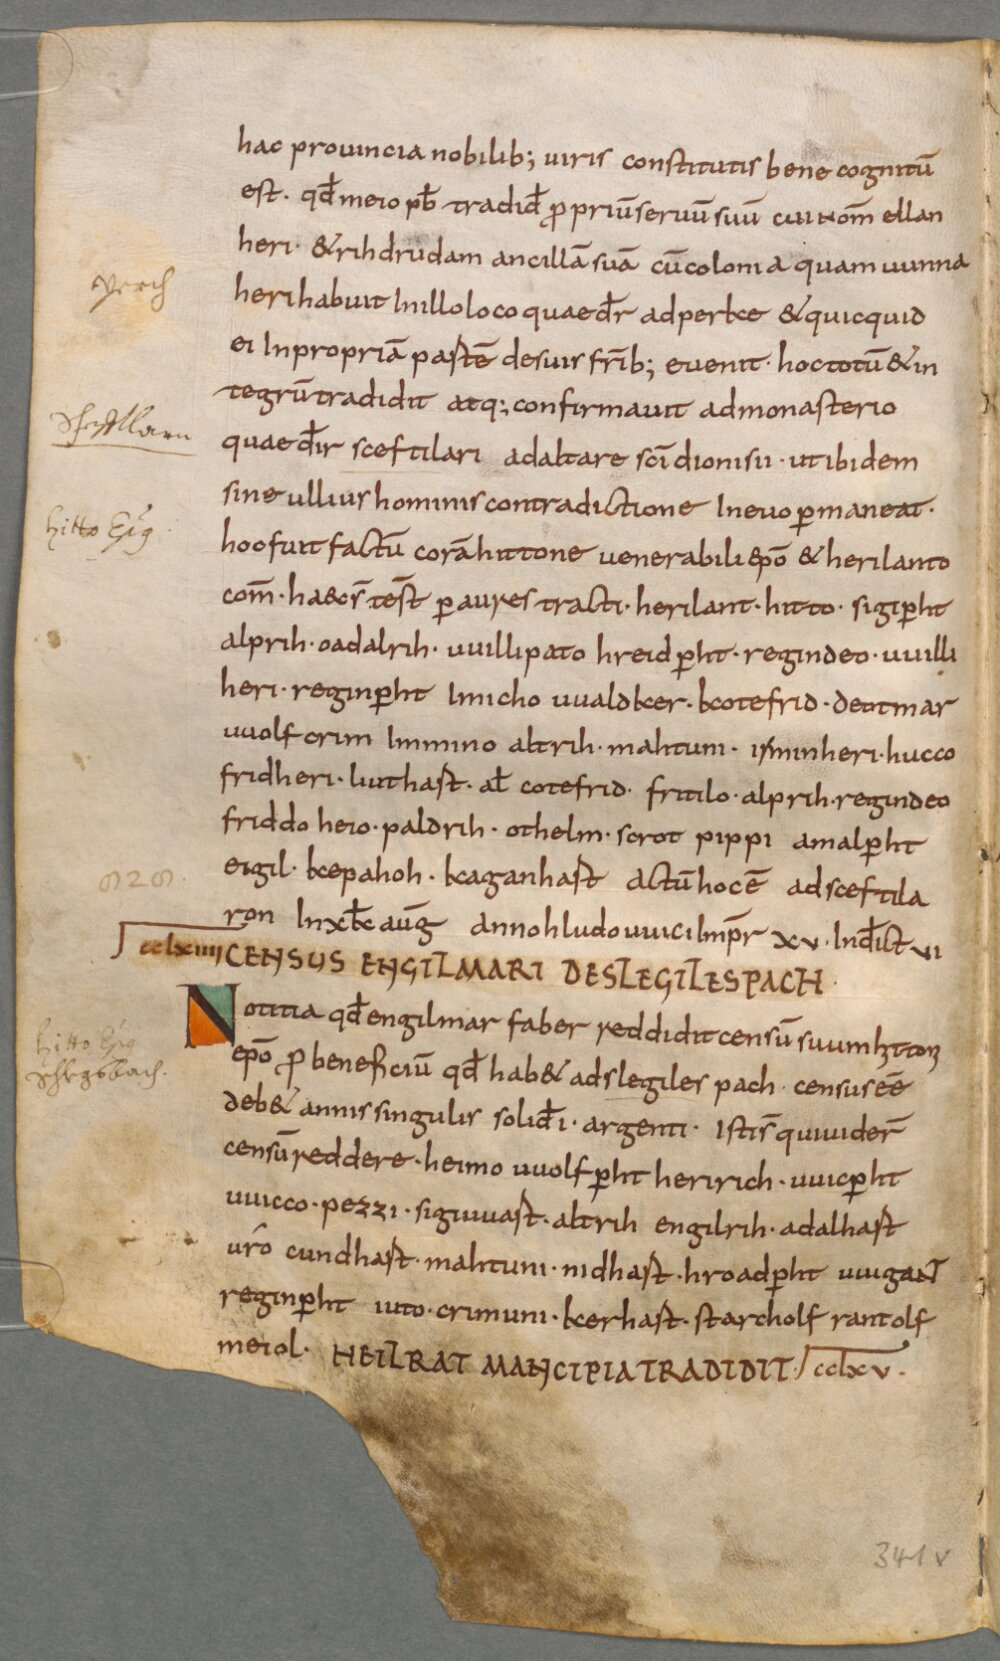 hac prouincia nobilib; uiris constitutis bene cognitū
est. qđ meio pƀ tradiđ ꝓpriū seruū suū cui nom̄ ellan
heri. & rihdrudam ancillā suā cū colonia quam uunna
Perch
heri habuit In illo loco quae dr̄ ad perke & quicquid
ei In propriā partē de suis fr̄ib; euenit. hoc totū & in
tegrū tradidit atq; confirmauit ad monasterio
Scheftlarn
quae dr̄ sceftilari ad altare sc̄i dionisii. ut ibidem
sine ullius hominis contradictione In euo ꝑmaneat.
hitto Ep̄g
hoc fuit factū corā hittone uenerabili ep̄o & herilanto
com̄. haec s̄ test̄ ꝑ aures tracti. herilant. hitto. sigiꝑht
alprih. oadalrih. uuillipato hreidꝑht. regindeo. uuilli
heri. reginꝑht Imicho uualdker. kcotefrid. deotmar
uuolfcrim Immino altrih. mahtuni. isminheri. hucco
fridheri. liuthast. al̄ cotefrid. fritilo. alprih. regindeo
friddo heio. paldrih. othelm. scrot pippi amalꝑht
828.
eigil. kepahoh. kaganhast actū hoc ē ad sceftila
ron In xƚ kƚ aūg anno hludouuici Imꝑr xv. Inđict vi
cclxiiii CENSUS ENGILMARI DE SLEGILESPACH
Notitia qđ engilmar faber reddidit censū suum hittoni
hitto Ep̄g
ep̄o ꝓ beneficiū qđ hab& ad slegiles pach. census eē
Schlegsbach.
deb& annis singulis soliđ i. argenti. Isti s̄ qui uider̄
censū reddere. heimo uuolfꝑht heririch. uuicꝑht
uuicco. pezzi. siguuast. altrih engilrih. adalhast
uro cundhast. mahtuni. nidhast. hroadꝑht uuigant
reginꝑht iuto. crimuni. kerhast. starcholf rantolf
meiol. HEILRAT MANCIPIA TRADIDIT. cclxv.
341 v